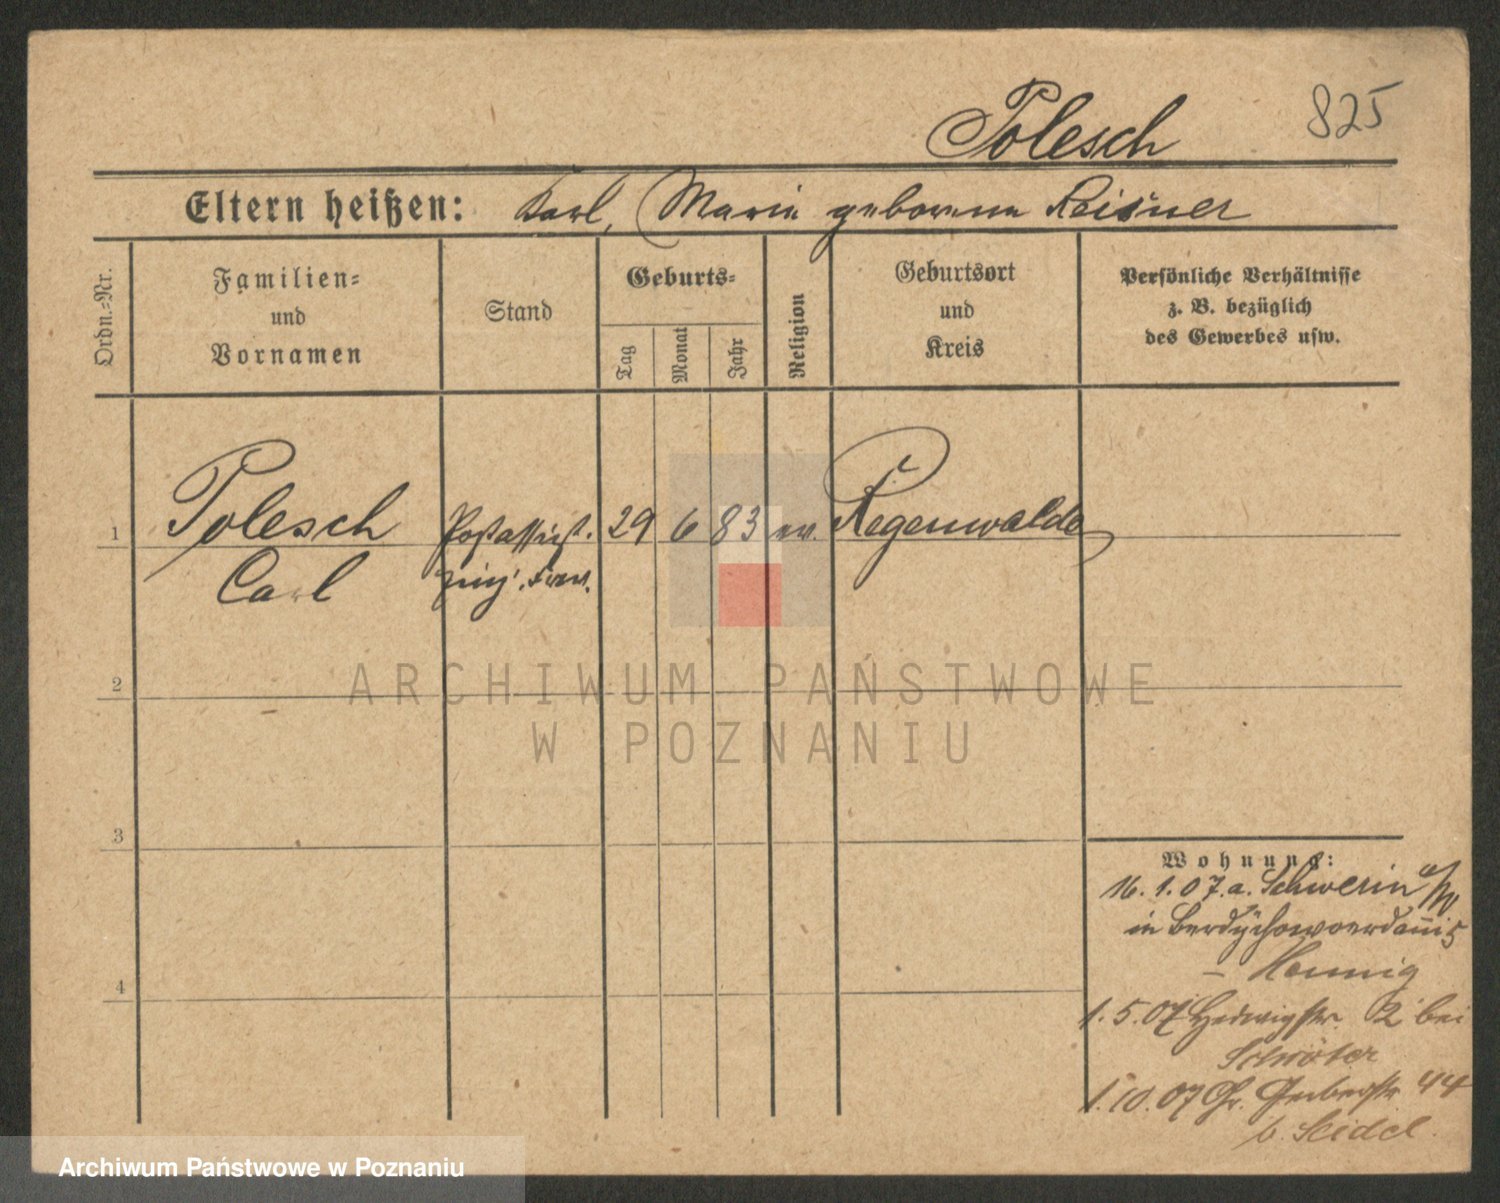 Polesch 825
Eltern heißen: Karl, Marie geborene Reisner
Ordn.-Nr.
Familien-
und
Vornamen
Stand
Geburts-
Tag
Monat
Jahr
Religion
Geburtsort
und
Kreis
Persönliche Verhältnisse
z. B. bezüglich
des Gewerbes usw.
1 Polesch Postassist. 29 6 83 ev. Regenwalde
Carl
2
3
4
Wohnung:
16.1.07. a. Schwerin a/W
in Berdychowoerdamm 5
- Hennig
1.5.07 Hedwigstr. 2 bei
Schröter
1.10.07 Gr. Gerberstr 44
b. Seidel.
ARCHIWUM PAŃSTWOWE
W POZNANIU
Archiwum Państwowe w Poznaniu